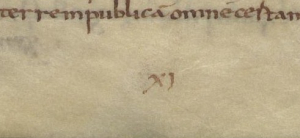 ter rempublicā omnē cestam
XI